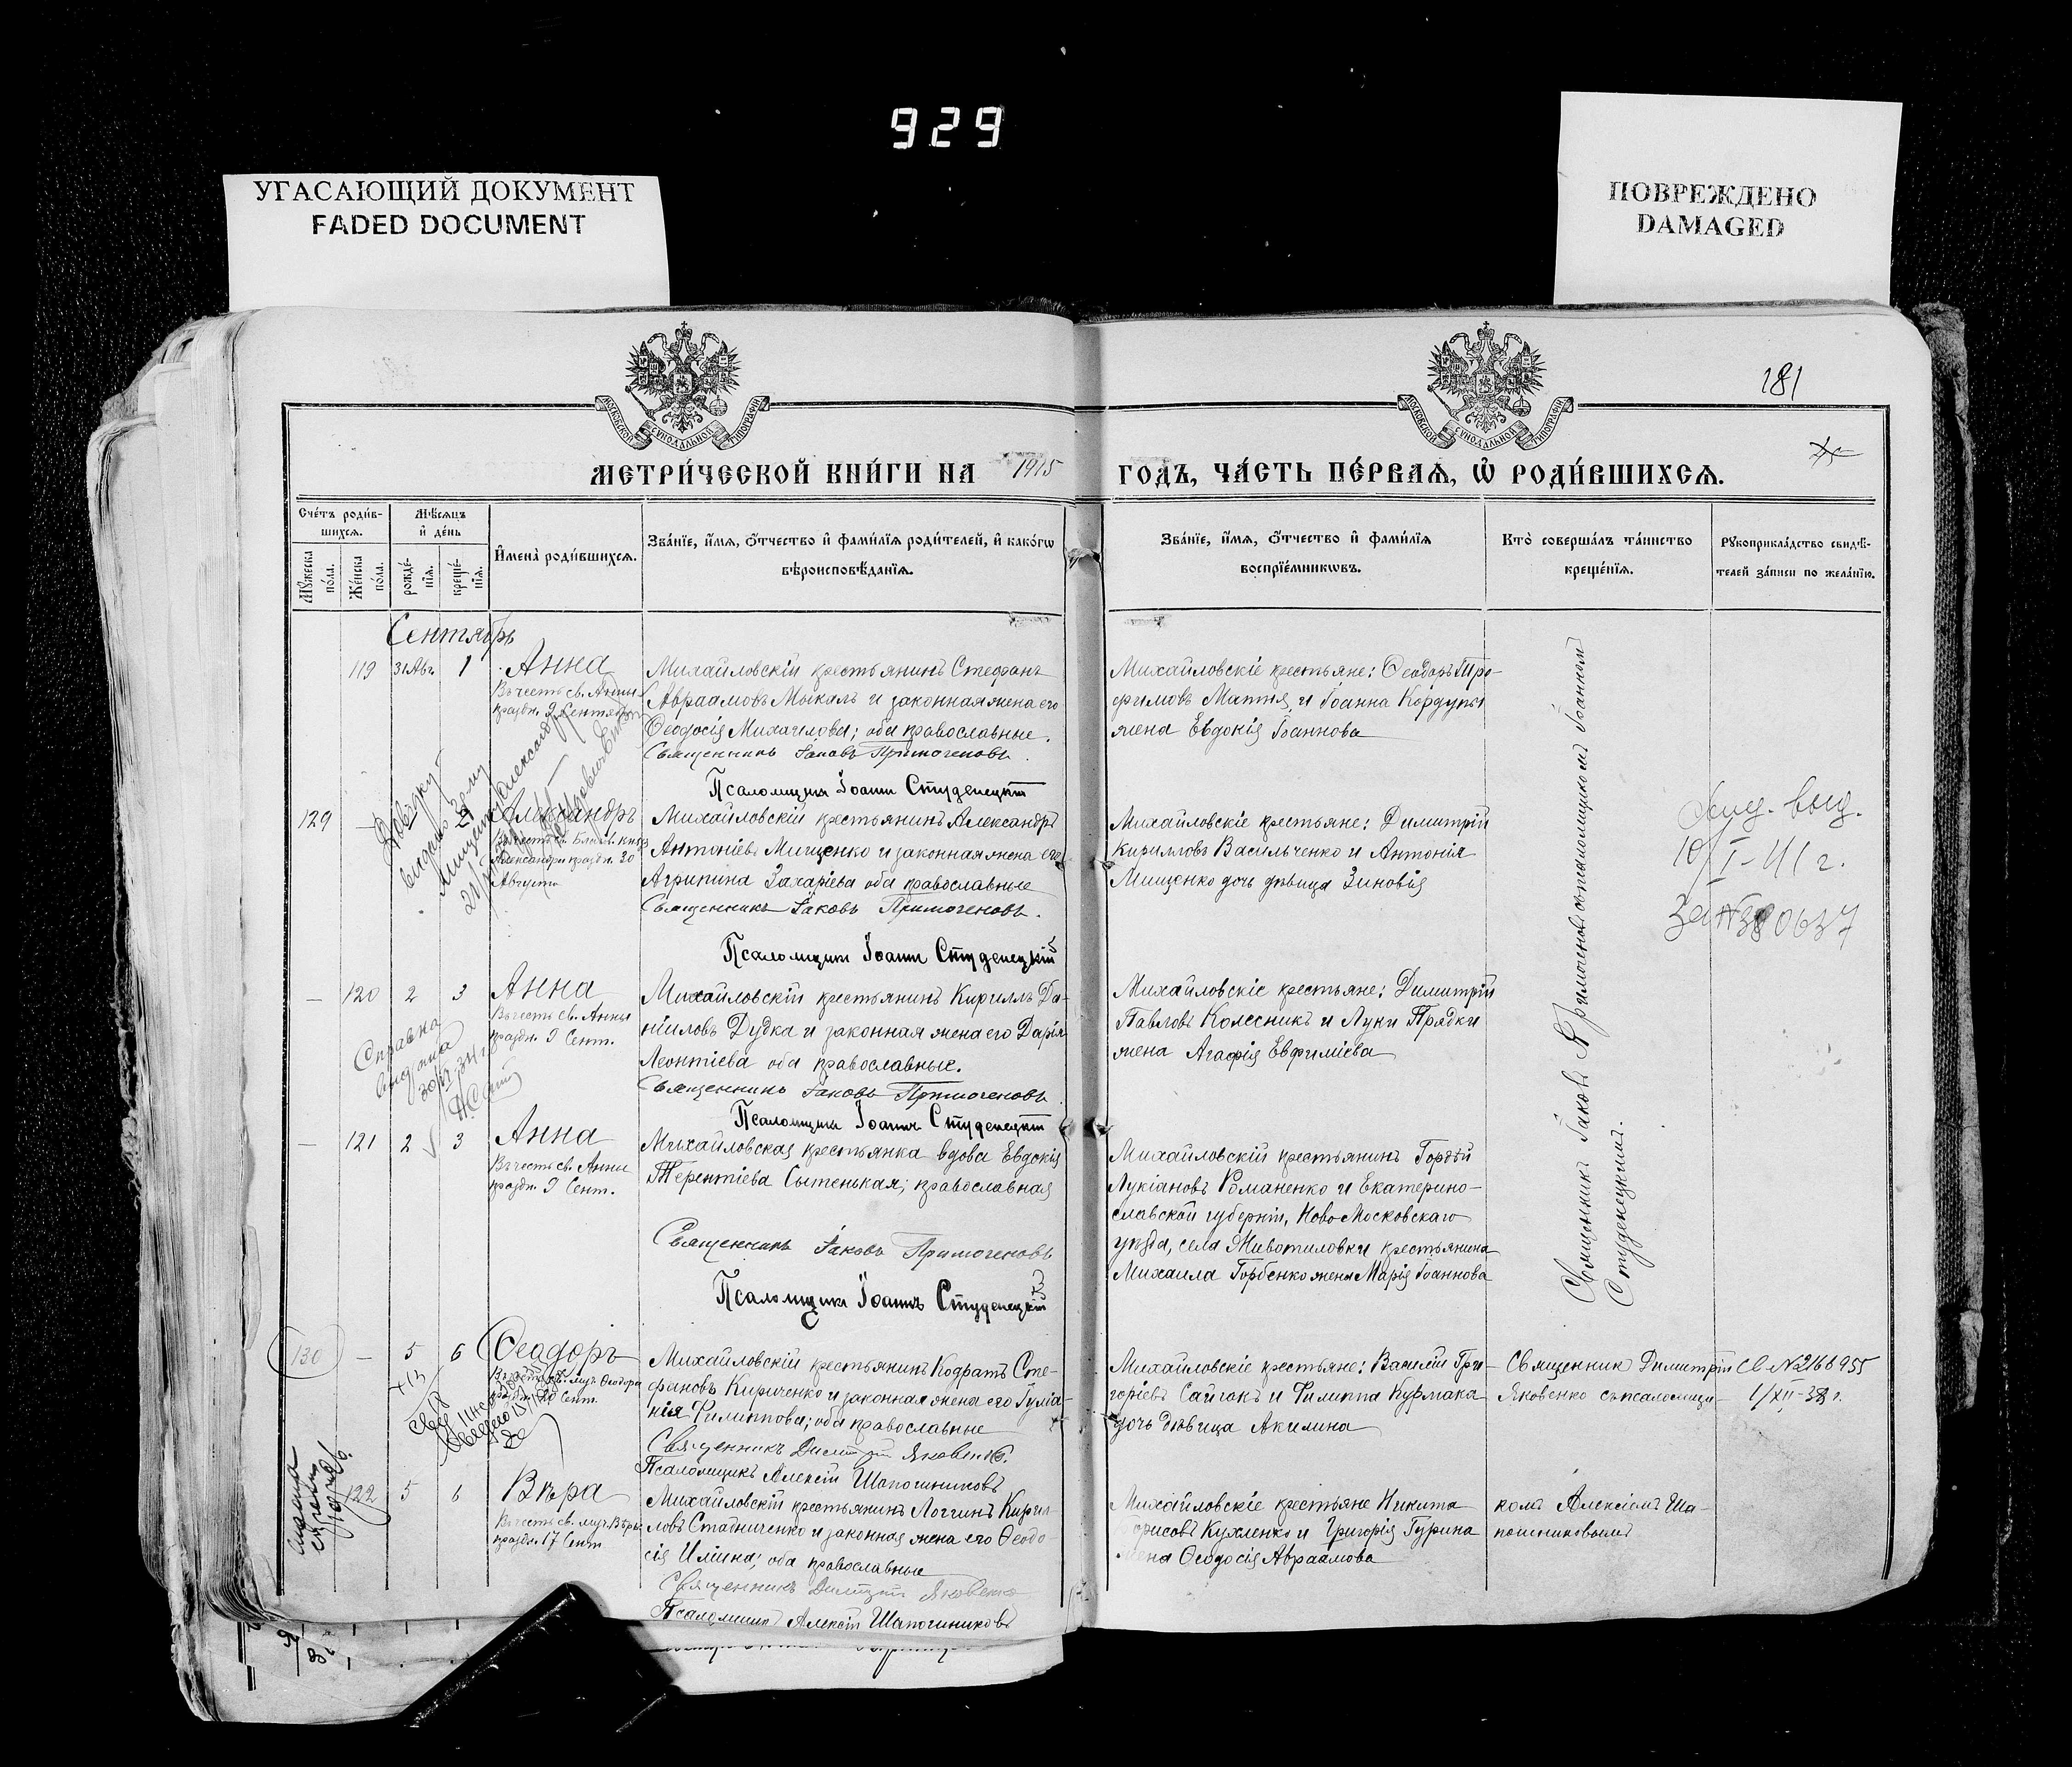 929
УГАСАЮЩИЙ ДОКУМЕНТ
FADED DOCUMENT
ПОВРЕЖДЕНО
DAMAGED
МОСКОВСКОЙ СѴНОДАЛЬНОЙ ТИПОГРАФІИ
МОСКОВСКОЙ СѴНОДАЛЬНОЙ ТИПОГРАФІИ
181
МЕТРИ́ЧЕСКОЙ КНИ́ГИ НА 1915 ГОДЪ, ЧА́СТЬ ПЕ́РВАѦ, Ѡ҆ РОДИ́ВШИХСѦ.
Сче́тъ роди́в-
шихсѧ.
Мꙋжеска по́ла.
Же́нска по́ла.
Мѣ́сѧцъ и҆ де́нь
рожде́-
нїѧ.
креще́-
нїѧ.
И҆мена̀ роди́вшихсѧ.
Зва́нїе, и҆́мѧ, ѻ҆́тчество и҆ фами́лїѧ роди́телей, и҆ како́гѡ
вѣроисповѣ́данїѧ.
Зва́нїе, и҆́мѧ, ѻ҆́тчество и҆ фами́лїѧ
воспрїе́мникѡвъ.
Кто̀ соверша́лъ та́инство
креще́нїѧ.
Рꙋкоприкла́дство свидѣ́-
телей за́писи по жела́нїю.
Сентябрь
119 31 Авг. 1 Анна
Въ честь св. Анны
праздн. 9 Сентября
Михайловскій крестьянинъ Стефанъ
Авраамовъ Мыкалъ и законная жена его
Ѳеодосія Михаилова; оба православные.
Священникъ Іаковъ Примогеновъ.
Псаломщикъ Іоаннъ Студенецкій
Михайловскіе крестьяне: Ѳеодоръ Тро-
фимовъ Маття и Іоанна Кордупы
жена Евдокія Іоаннова
129 — Александръ
Александра праздн. 30
Августа
Михайловскій крестьянинъ Александръ
Антоніевъ Мищенко и законная жена его
Агрипина Захаріева оба православные
Священникъ Іаковъ Примогеновъ.
Псаломщикъ Іоаннъ Студенецкій
Михайловскіе крестьяне: Димитрій
Кирилловъ Васильченко и Антонія
Мищенко дочь дѣвица Зиновія
выд.
10/I-41 г.
— 120 2 3 Анна
Въ честь св. Анны
праздн. 9 Сент.
Справка
выдана
Михайловскій крестьянинъ Кириллъ Да-
ніиловъ Дудка и законная жена его Дарія
Леонтіева оба православные.
Священникъ Іаковъ Примогеновъ.
Псаломщикъ Іоаннъ Студенецкій
Михайловскіе крестьяне: Димитрій
Павловъ Колесникъ и Луки Прядки
жена Агафія Евфиміева
— 121 2 3 Анна
Въ честь св. Анны
праздн. 9 Сент.
Михайловская крестьянка вдова Евдокія
Терентіева Сытенькая; православная
Священникъ Іаковъ Примогеновъ
Псаломщикъ Іоаннъ Студенецкій
Михайловскій крестьянинъ Гордѣй
Лукіановъ Романенко и Екатерино-
славской губерніи, Ново Московскаго
уѣзда, села Животиловки крестьянина
Михаила Горбенко жена Марія Іоаннова
Священникъ Іаковъ Примогеновъ съ псаломщикомъ Іоанномъ
Студенецкимъ.
130 — 5 6 Ѳеодоръ
Михайловскій крестьянинъ Кодратъ Сте-
фановъ Кириченко и законная жена его
Филиппова; оба православные
Священникъ Димитрій Яковенко.
Псаломщикъ Алексій Шапошниковъ
Михайловскіе крестьяне: Василій Гри-
горіевъ Сайгакъ и Филиппа Курмака
дочь дѣвица Акилина
Священникъ Димитрій
Яковенко съ псаломщи-
№2166955
1/XII-38 г.
122 5 6 Вѣра
Въ честь св. муч. Вѣры
праздн. 17 Сент
Михайловскій крестьянинъ Логгинъ Кирил-
ловъ Стадниченко и законная жена его Ѳеодо-
сія Иліина; оба православные
Священникъ Димитрій Яковенко
Псаломщикъ Алексій Шапошниковъ
Михайловскіе крестьяне Никита
Кухленко и Григорія Гурина
жена Ѳеодосія Авраамова
комъ Алексіемъ Ша-
пошниковымъ